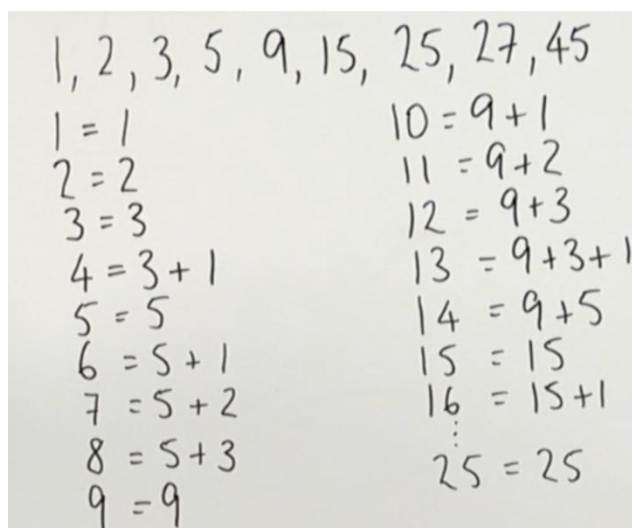 1, 2, 3, 5, 9, 15, 25, 27, 45
1 = 1
2 = 2
3 = 3
4 = 3 + 1
5 = 5
6 = 5 + 1
7 = 5 + 2
8 = 5 + 3
9 = 9
10 = 9 + 1
11 = 9 + 2
12 = 9 + 3
13 = 9 + 3 + 1
14 = 9 + 5
15 = 15
16 = 15 + 1
⋮
25 = 25